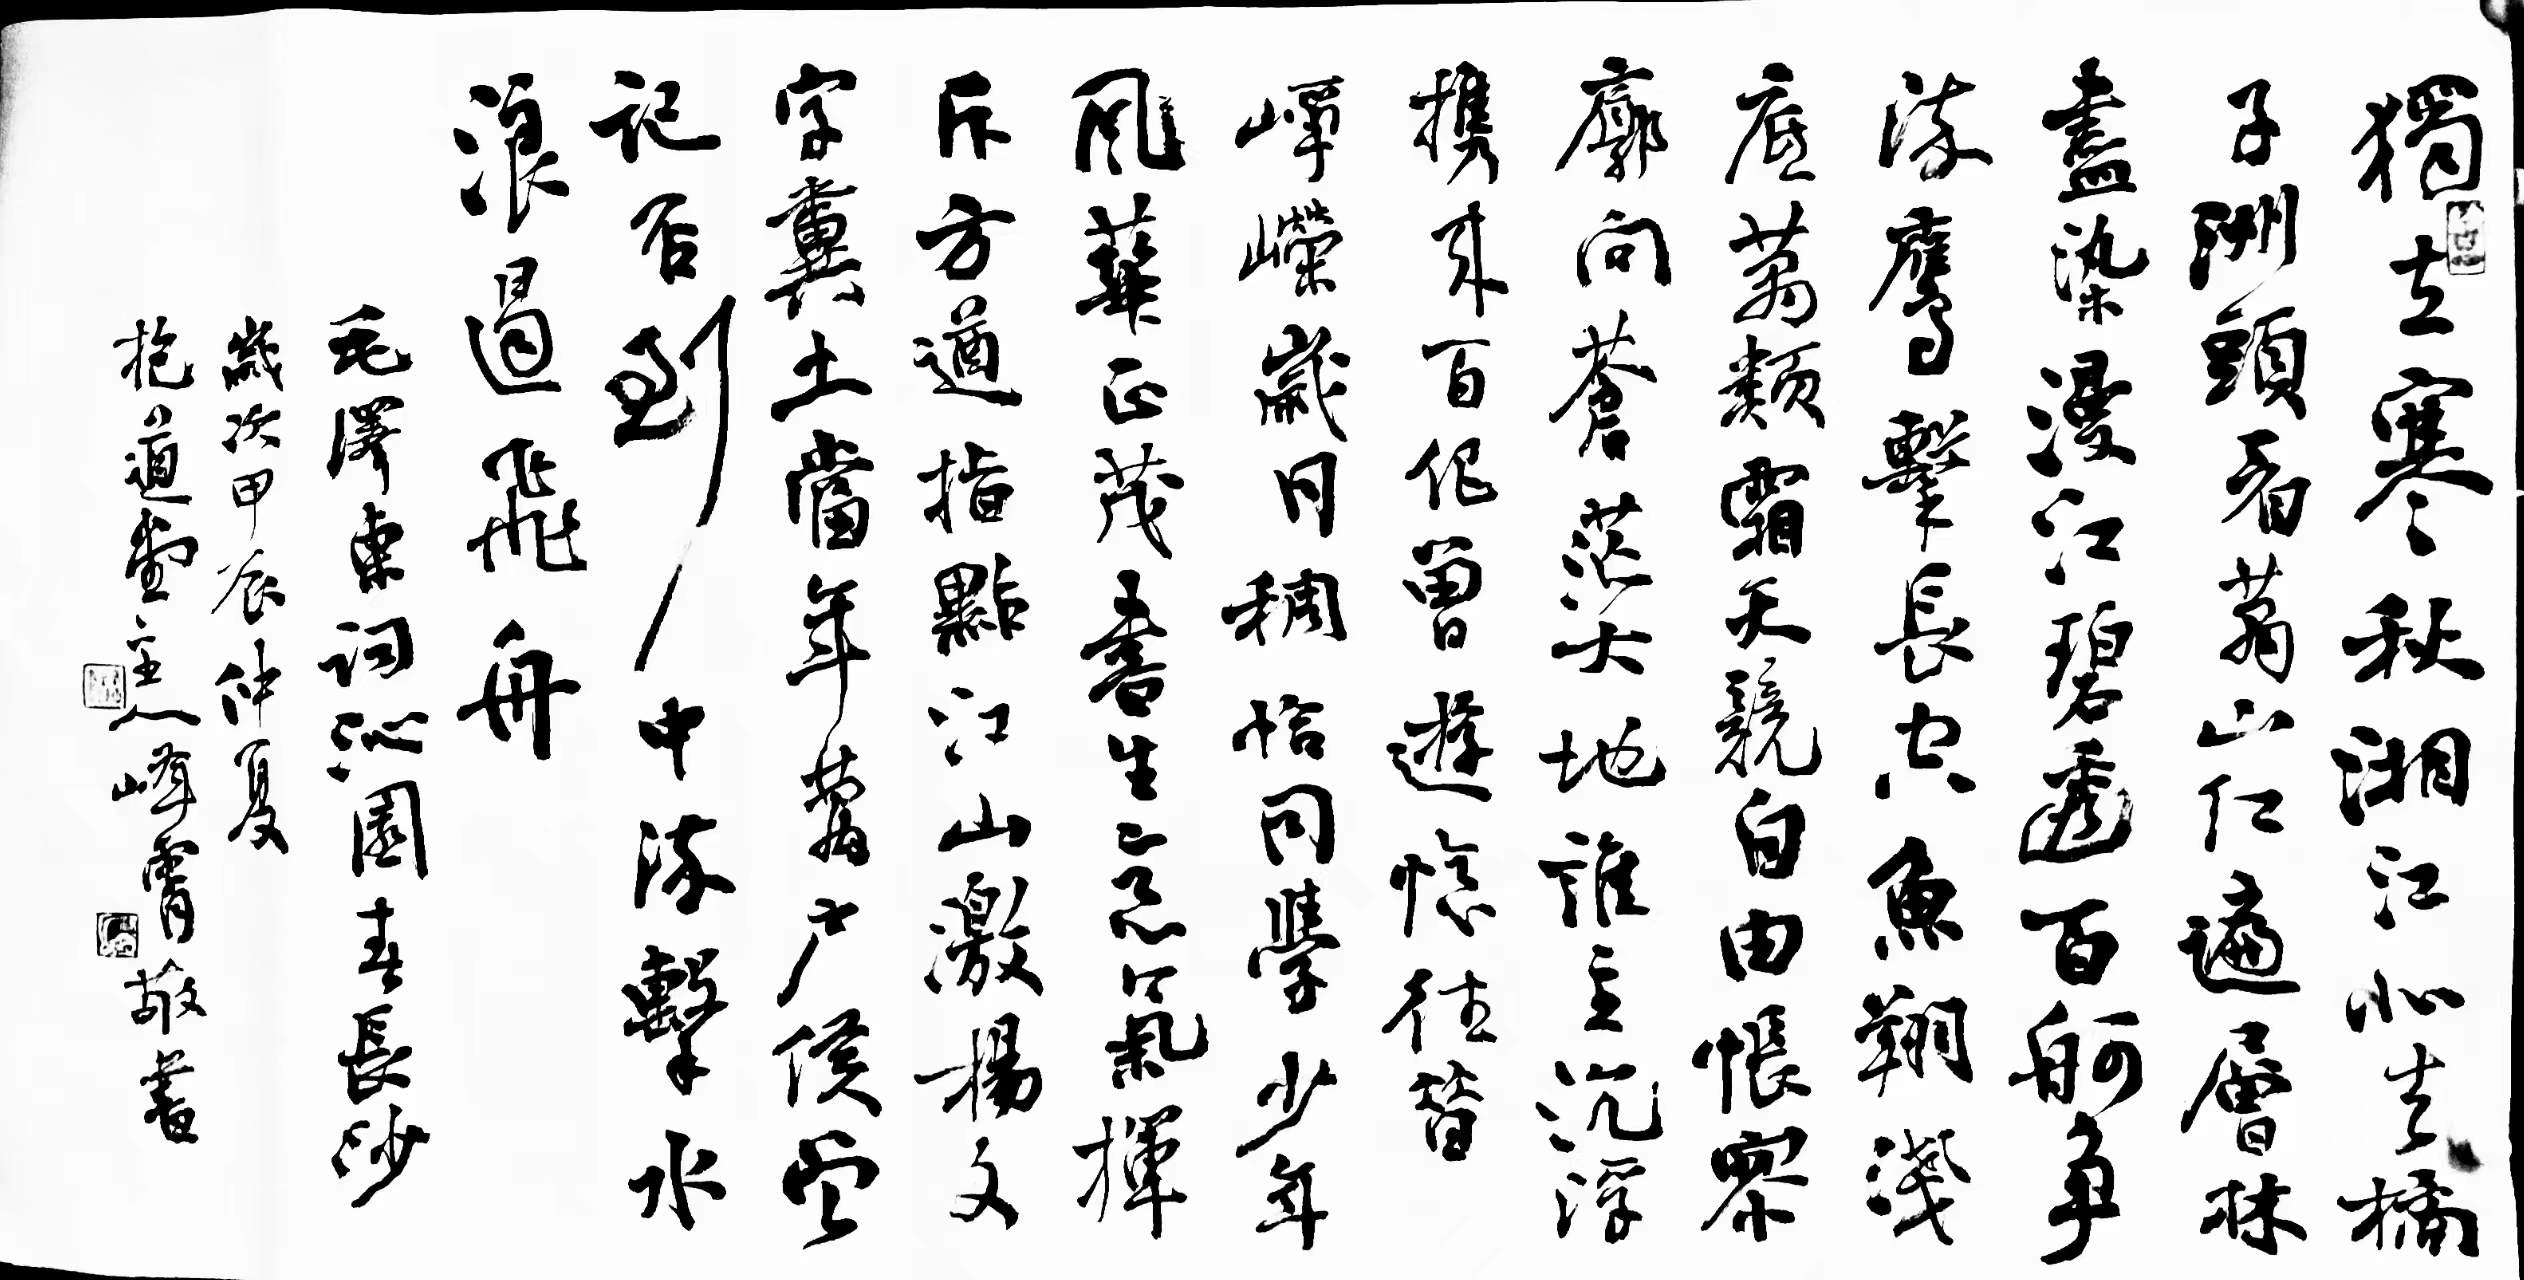 獨立寒秋湘江北去橘
子洲頭看萬山紅遍層林
盡染漫江碧透百舸争
流鷹擊長空魚翔淺
底萬類霜天競自由悵寥
廓問蒼茫大地誰主沉浮
携來百侣曾遊憶往昔
崢嶸歲月稠恰同學少年
風華正茂書生意氣揮
斥方遒指點江山激揚文
字糞土當年萬户侯曾
記否到中流擊水
浪遏飛舟
毛澤東詞沁園春長沙
歲次甲辰仲夏
抱道堂主人峰霄敬書